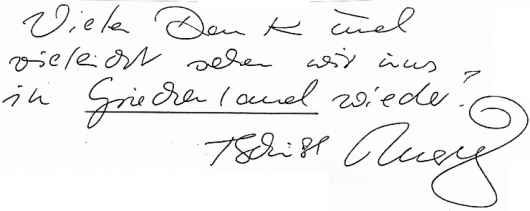 Vielen Dank und
vieleicht sehen wir uns
in Griechenland wieder?
Tschüß